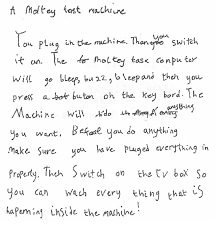 A Moltey tast machine
You plug in the machine. Then you switch
it on. The Moltey task computer
will go bleep, buzz, bleep and then you
press a button on the key bord. The
Machine will do anything
you want. Before you do anything
Make sure you have pluged everything in
Properly. Then switch on the tv box so
you can wach every thing that is
hapening inside the machine!